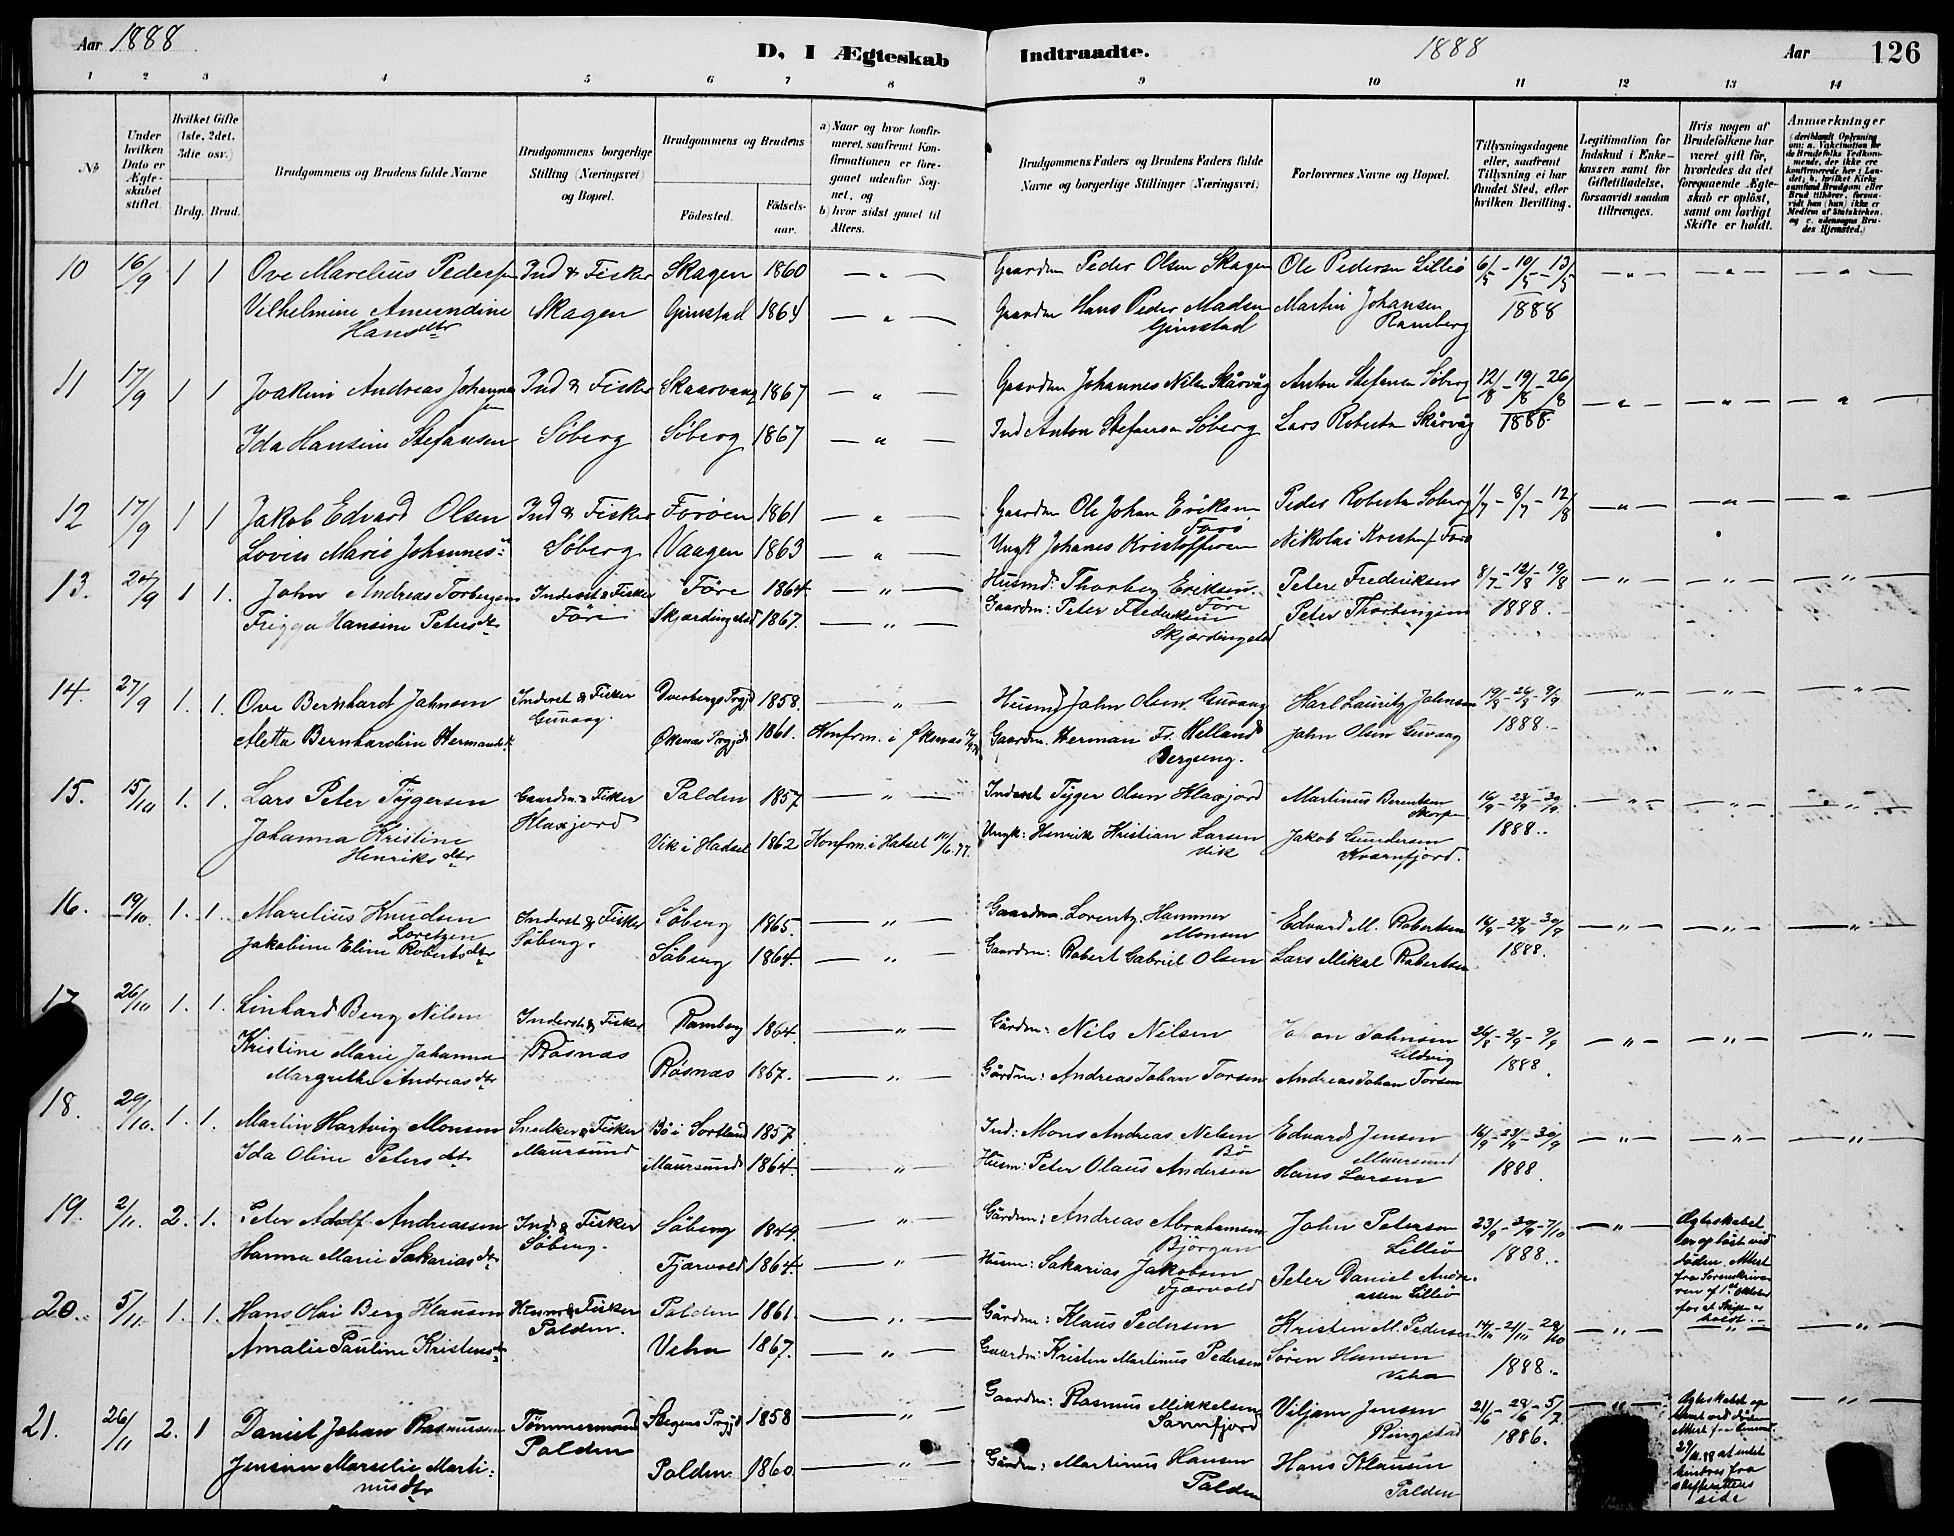 Aar 1888
D, I Ægteskab Indtraadte.
1888
Aar
126
1 2 3 4 5 6 7 8 9 10 11 12 13 14
No
Under hvilken Dato er Ægteskabet stiftet.
Hvilket Gifte (1ste, 2det, 3die osv.)
Brdg. Brud.
Brudgommens og Brudens fulde Navne
Brudgommens borgerlige Stilling (Næringsvei) og Bopæl.
Brudgommens og Brudens
Fødested. Fødselsaar.
a) Naar og hvor konfirmeret, saafremt Konfirmationen er foreganet udenfor Sognet, og
b) hvor sidst gaaet til Alters.
Brudgommens Faders og Brudens Faders fulde Navne og borgerlige Stillinger (Næringsvei)
Forlovernes Navne og Bopæl.
Tillysningsdagene eller, saafremt Tillysning ei har fundet Sted, efter hvilken Bevilling.
Legitimation for Indskud i Enkekassen samt for Giftetilladelse, forsaavidt saadan tiltrænges.
Hvis nogen af Brudefolkene har været gift før, hvorledes da det foregaaende Ægteskab er opløst, samt om lovligt Skifte er holdt.
Anmærkninger
10 16/9 1 1 Ove Marelius Pedersen Ind & Fisker Skagen 1860 — " — Gaardm Peder Olsen Skagen Ole Pedersen Lilleö 6/5 - 10/5 - 13/5 — " — — " — — " —
Vilhelmine Amundine Skagen Gimstad 1864 — " — Gaardm Hans Peder Madsen Martin Johansen 1888
Hansdtr Gimstad Ramberg
11 17/9 1 1 Joakim Andreas Johannesen Ind & Fisker Skaarvaag 1867 — " — Gaardm Johannes Nilsen Skårvåg Anton Stefansen Söberg 12/8 - 19/8 - 26/8 — " — — " — — " —
Ida Hansine Stefansen Söberg Söberg 1867 — " — Ind Anton Stefansen Söberg Lars Robertsen Skårvåg 1888.
12 17/9 1 1 Jakob Edvard Olsen Ind & Fisker Foröen 1861 — " — Gaardm Ole Johan Eriksen Peder Robertsen Soberg 1/7 - 8/7 - 12/8 — " — — " — — " —
Forö
Lovise Marie Johannes Söberg Vaagen 1863 — " — Ungk Johanes Kristoffersen Nikolai
13. 24/9 1 1. John Andreas Torbergsen Inderst & Fisker Före 1864. — " — Husmd: Thorberg Eriksen. Peter Frederiksen 8/7 - 12/8 - 19/8 — " — — " — — " —
Före
Frigga Hansine Petersdtr Före Skjærdingstad 1867. — " — Gaardm: Peter Frederiksen Peter Thorbergsen 1888.
Skjærdingstad
14. 27/9 1. 1. Ove Bernhardt Johnsen Inderst & Fisker Dverbergs Prgjd 1858. — " — Husmd John Olsen Guvaag Karl Lauritz Johnsen 19/8 - 26/8 - 9/9 — " — — " — — " —
Guvaag.
Aletta Bernhardine Hermansdtr Øksnæs Prgjd 1861. Konfrm. i Øksnæs Gaardm. Herman Fr. Helland John Olsen Guvaag 1888.
Bergseng.
15. 15/10 1. 1. Lars Peter Tygersen Gaardm. & Fisker Polden 1857. — " — Inderst Tyger Olsen Klaxjord Martinus Berentsen 16/9 - 23/9 - 30/9 — " — — " — — " —
Klaxjord Skorpen
Johanna Kristine Vik i Hadsel 1862 Konfrm. i Hadsel 10/6.77. Ungk: Henrik Kristian Larsen Jakob Gundersen 1888.
Henriksdtr Vik Kværnfjord.
16. 19/10 1. 1. Marelius Knudsen Inderst & Fisker Söberg 1865. — " — Gaardm. Lorentz Hammer Edvard M. Robertsen 16/9 - 23/9 - 30/9 — " — — " — — " —
Loretzen Söberg. Monsen
Jakobine Eline Robertsdtr Söberg 1864. — " — Gaardm: Robert Gabriel Olsen Lars Mikal Robertsen 1888.
17 26/10 1. 1. Linhard Berg Nilsen Inderst & Fisker Ramberg 1864. — " — Gårdm: Nils Nilsen Johan Johnsen 26/8 - 2/9 - 9/9 — " — — " — — " —
Lildvig
Kristine Marie Johanna Røsnæs Røsnæs 1867. — " — Gårdm: Andreas Johan Torsen Andreas Johan Torsen 1888.
Margrethe Andreasdtr
18. 29/10. 1. 1. Martin Hartvig Monsen Snedker & Fisker Bö i Sortland 1857. Ind: Mons Andreas Nelsen Edvard Jensen 16/9 - 23/9 - 30/9 — " — — " — — " —
Maursund Bö Maursund
Ida Oline Petersdtr Maursund 1864. — " — Husm: Peter Olaus Andersen Hans Larsen 1888.
19. 2/11. 2. 1. Peter Adolf Andreassen Ind & Fisker Söberg 1849. — " — Gårdm: Andreas Abrahamsen John Petersen 23/9 - 30/9 - 7/10 — " — Ægteskabet er opløst ved Døden. Attest fra Sorenskriveren af 1ste Oktober for at Skifte er holdt.
Söberg. Björgan Lilleö 1888.
Hanna Marie Sakariasdtr Fjærvold 1864. — " — Husm: Sakarias Jakobsen Peter Daniel Andreassen Lilleö
Fjærvold
20. 5/11. 1. 1. Hans Olai Berg Klausen Husm & Fisker Polden 1861. — " — Gårdm: Klaus Pedersen Kristen M. Pedersen 14/10 - 21/10 - 28/10 — " — — " — — " —
Polden.
Amalie Pauline Kristensdtr Veha 1867. — " — Gaardm: Kristen Martinus Pedersen Sören Hansen 1888.
Veha
21. 26/11 2. 1 Daniel Johan Rasmussen Tömmermand Stegens Prgjd 1858 — " — Gaardm: Rasmus Mikkelsen Viljam Jensen 21/6 - 28/6 - 5/7 — " — Ægteskabet op ved Døden. Attest fra 29/11 88 at intet hindres fra skifterettens side — " —
Polden Ringstad 1886.
Jensine Marselie Martinusdtr Polden 1860. — " — Gårdm: Martinus Hansen Hans Klausen
Polden Polden